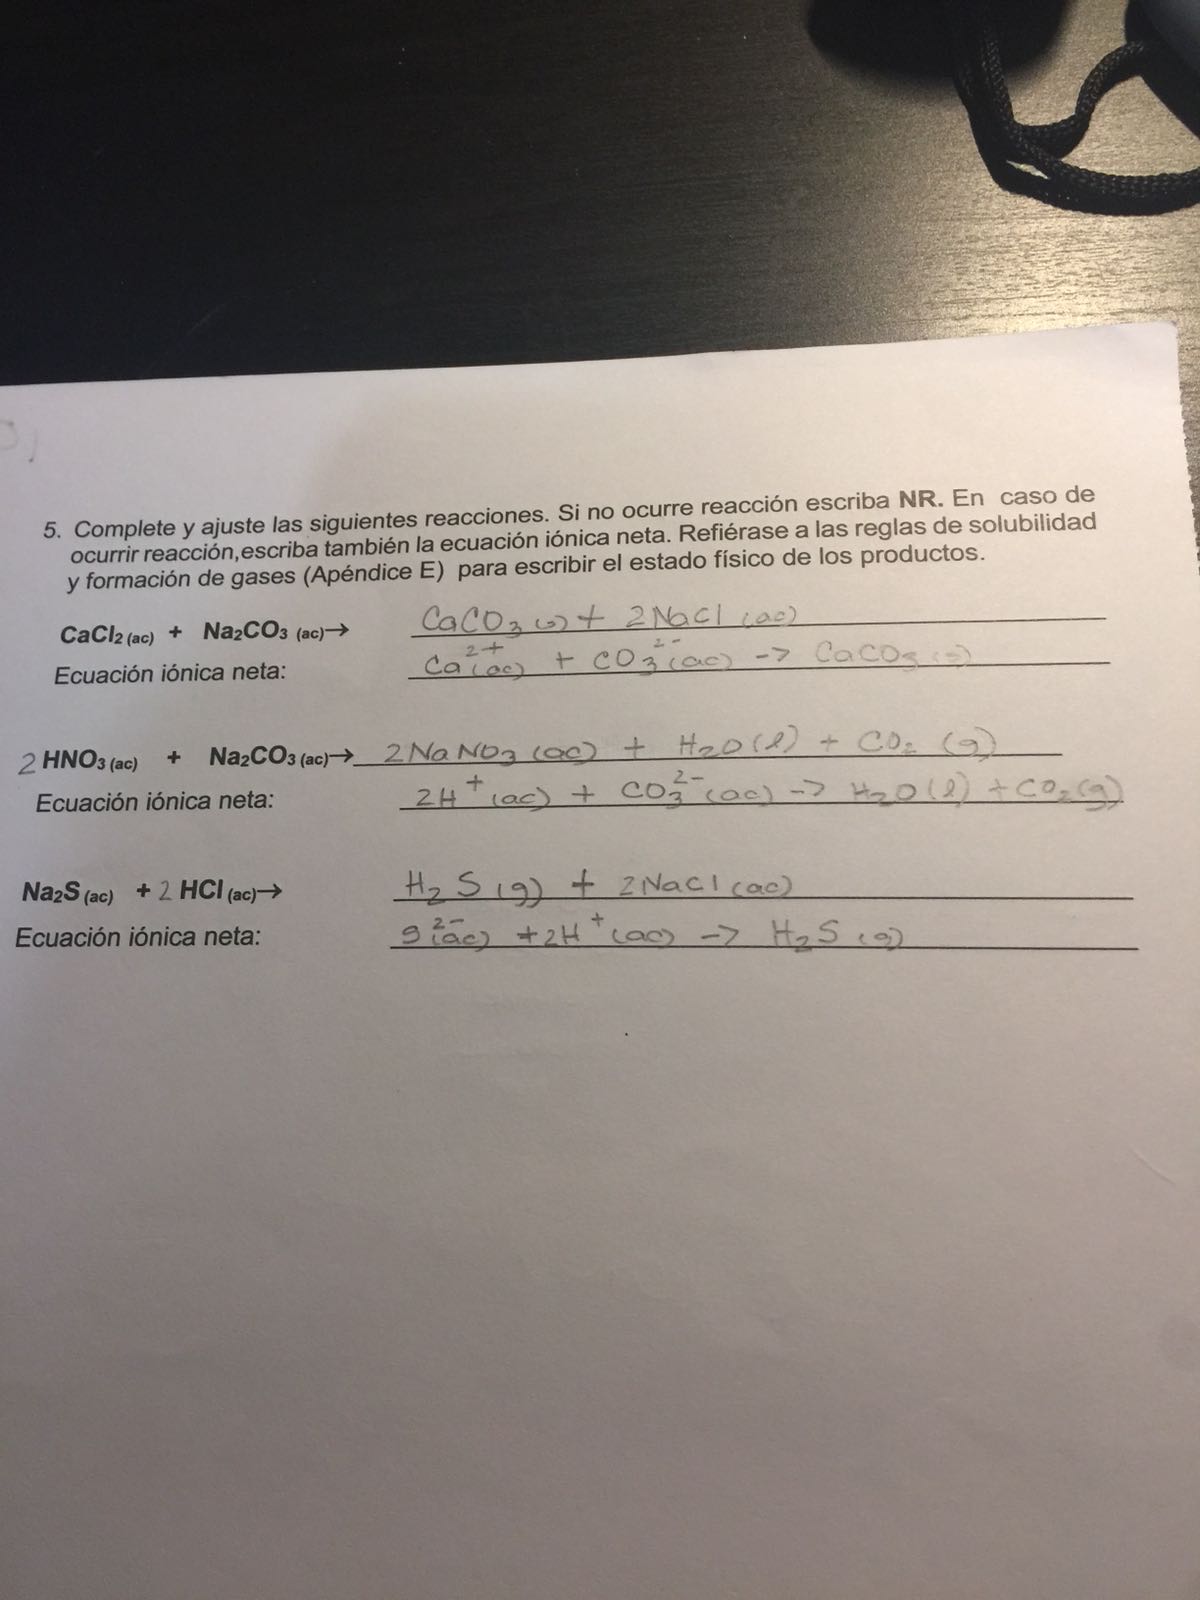 5. Complete y ajuste las siguientes reacciones. Si no ocurre reacción escriba NR. En caso de
ocurrir reacción, escriba también la ecuación iónica neta. Refiérase a las reglas de solubilidad
y formación de gases (Apéndice E) para escribir el estado físico de los productos.
CaCl₂ (ac) + Na₂CO₃ (ac)→ CaCO₃ (s) + 2NaCl (ac)
Ecuación iónica neta: Ca²⁺(ac) + CO₃²⁻(ac) -> CaCO₃ (s)
2 HNO₃ (ac) + Na₂CO₃ (ac)→ 2NaNO₃ (ac) + H₂O(l) + CO₂ (g)
Ecuación iónica neta: 2H⁺(ac) + CO₃²⁻(ac) -> H₂O(l) + CO₂(g)
Na₂S (ac) + 2 HCl (ac)→ H₂S (g) + 2NaCl (ac)
Ecuación iónica neta: S²⁻(ac) + 2H⁺(ac) -> H₂S (g)